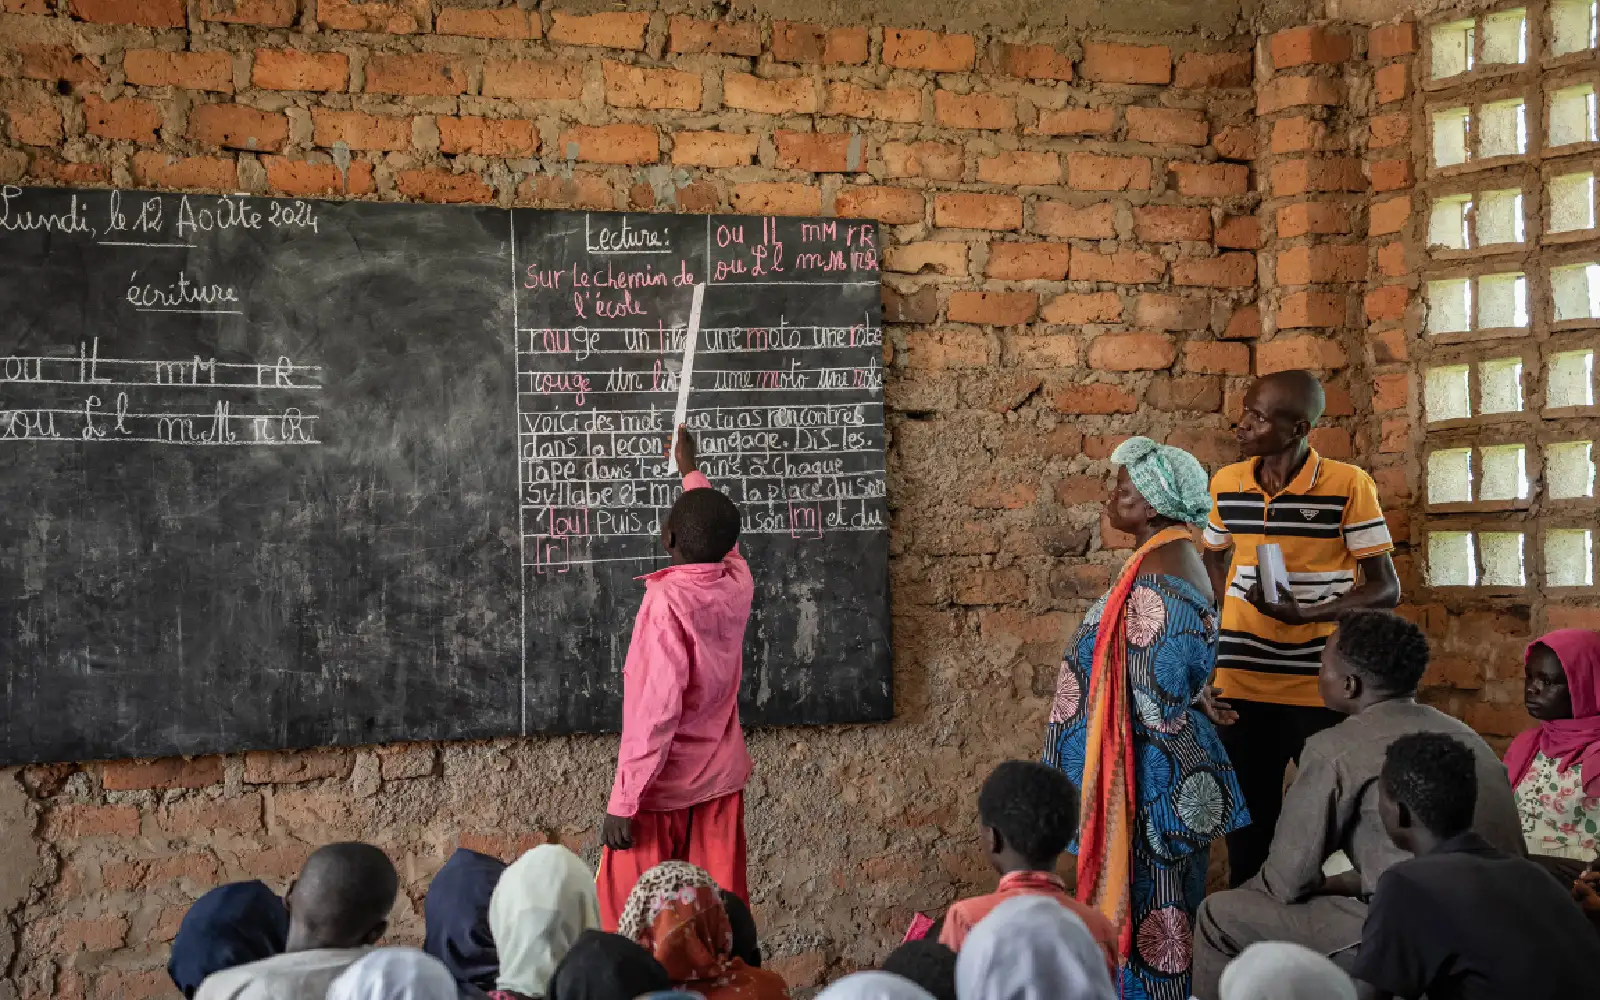 Lundi, le 12 Aoûte 2024
écriture
ou lL mM rR
ou L l m M r R
Lecture:
ou lL mM rR
ou L l m M r R
Sur Le chemin de
l'école
rouge un une moto une robe
rouge un une moto une robe
voici des mots que tu as rencontrés
dans la leçon langage. Dis les.
Tape dans tes mains à chaque
Syllabe et la place du son
[ou] Puis du son [m] et du
[r]